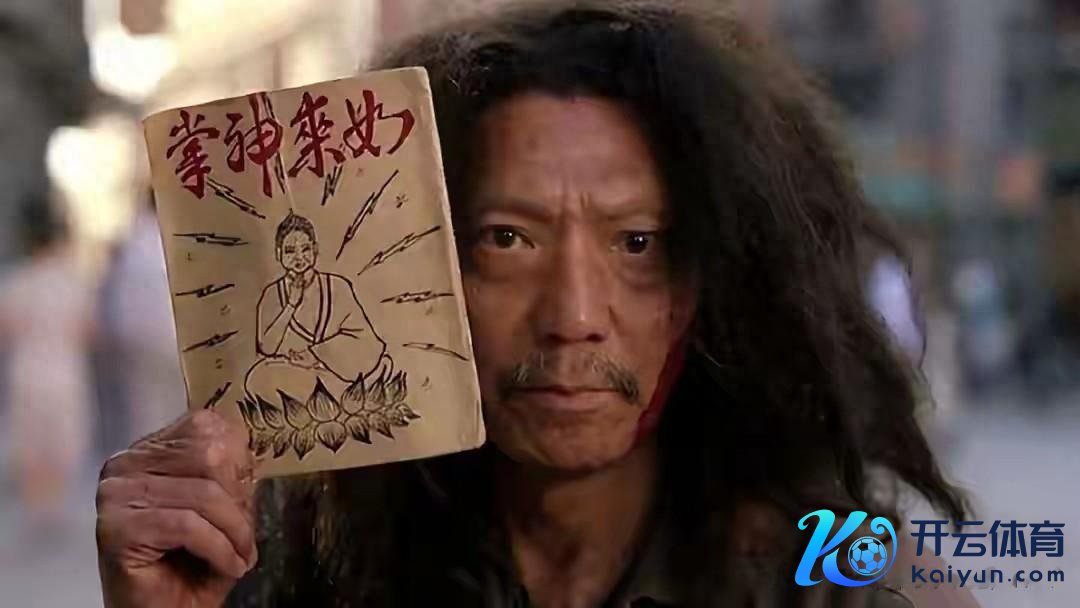 如來神掌
开云体育
kaiyun.com